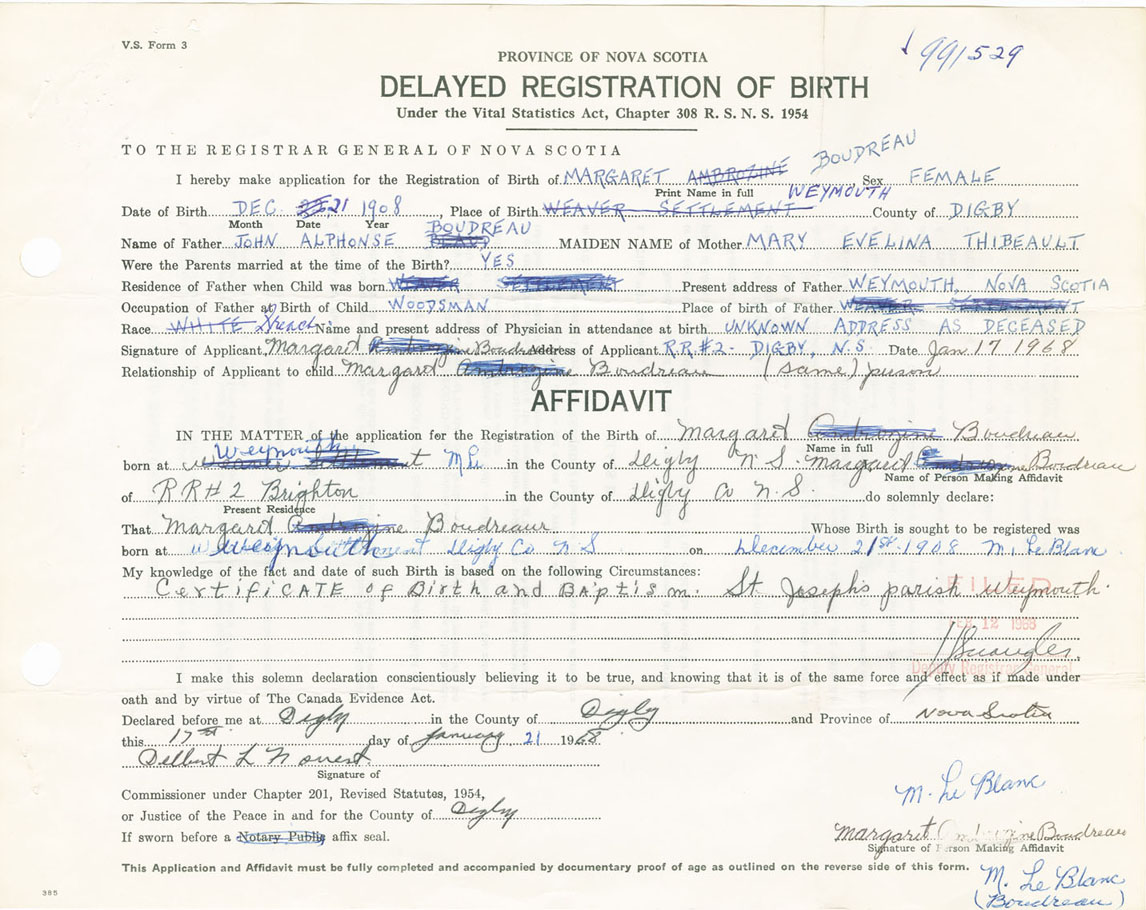 V.S. Form 3
991529
PROVINCE OF NOVA SCOTIA
DELAYED REGISTRATION OF BIRTH
Under the Vital Statistics Act, Chapter 308 R. S. N. S. 1954
TO THE REGISTRAR GENERAL OF NOVA SCOTIA
BOUDREAU
I hereby make application for the Registration of Birth of MARGARET AMBROZINE Sex FEMALE
Print Name in full WEYMOUTH
Date of Birth DEC 21 1908, Place of Birth WEAVER SETTLEMENT County of DIGBY
Month Date Year BOUDREAU
Name of Father JOHN ALPHONSE MAIDEN NAME of Mother MARY EVELINA THIBEAULT
Were the Parents married at the time of the Birth? YES
Residence of Father when Child was born WEAVER SETTLEMENT Present address of Father WEYMOUTH, NOVA SCOTIA
Occupation of Father at Birth of Child WOODSMAN Place of birth of Father WEAVER SETTLEMENT
Race WHITE French Name and present address of Physician in attendance at birth UNKNOWN ADDRESS AS DECEASED
Signature of Applicant Margaret Ambrozine Boudreau Address of Applicant R.R.#2 - DIGBY, N.S. Date Jan 17 1968
Relationship of Applicant to child Margaret Ambrozine Boudreau (same) person
AFFIDAVIT
IN THE MATTER of the application for the Registration of the Birth of Margaret Ambrozine Boudreau
Weymouth Name in full
born at Weaver Settlement M Le in the County of Digby N S. Margaret Ambrozine Boudreau
Name of Person Making Affidavit
of RR#2 Brighton in the County of Digby Co N.S. do solemnly declare:
Present Residence
That Margaret Ambrozine Boudreau Whose Birth is sought to be registered was
born at Weymouth Digby Co N S on December 21st 1908 M. Le Blanc
My knowledge of the fact and date of such Birth is based on the following Circumstances:
CertifiCATE of Birth and BAptism. St Joseph's parish Weymouth.
FILED
FEB 12 1968
Deputy Registrar General
I make this solemn declaration conscientiously believing it to be true, and knowing that it is of the same force and effect as if made under
oath and by virtue of The Canada Evidence Act.
Declared before me at Digby in the County of Digby and Province of Nova Scotia
this 17th day of January, 21 1968
Delbert L
Signature of
Commissioner under Chapter 201, Revised Statutes, 1954,
or Justice of the Peace in and for the County of Digby
M. Le Blanc
If sworn before a Notary Public affix seal.
Margaret Ambrozine Boudreau
Signature of Person Making Affidavit
This Application and Affidavit must be fully completed and accompanied by documentary proof of age as outlined on the reverse side of this form.
M. Le Blanc
(Boudreau)
385